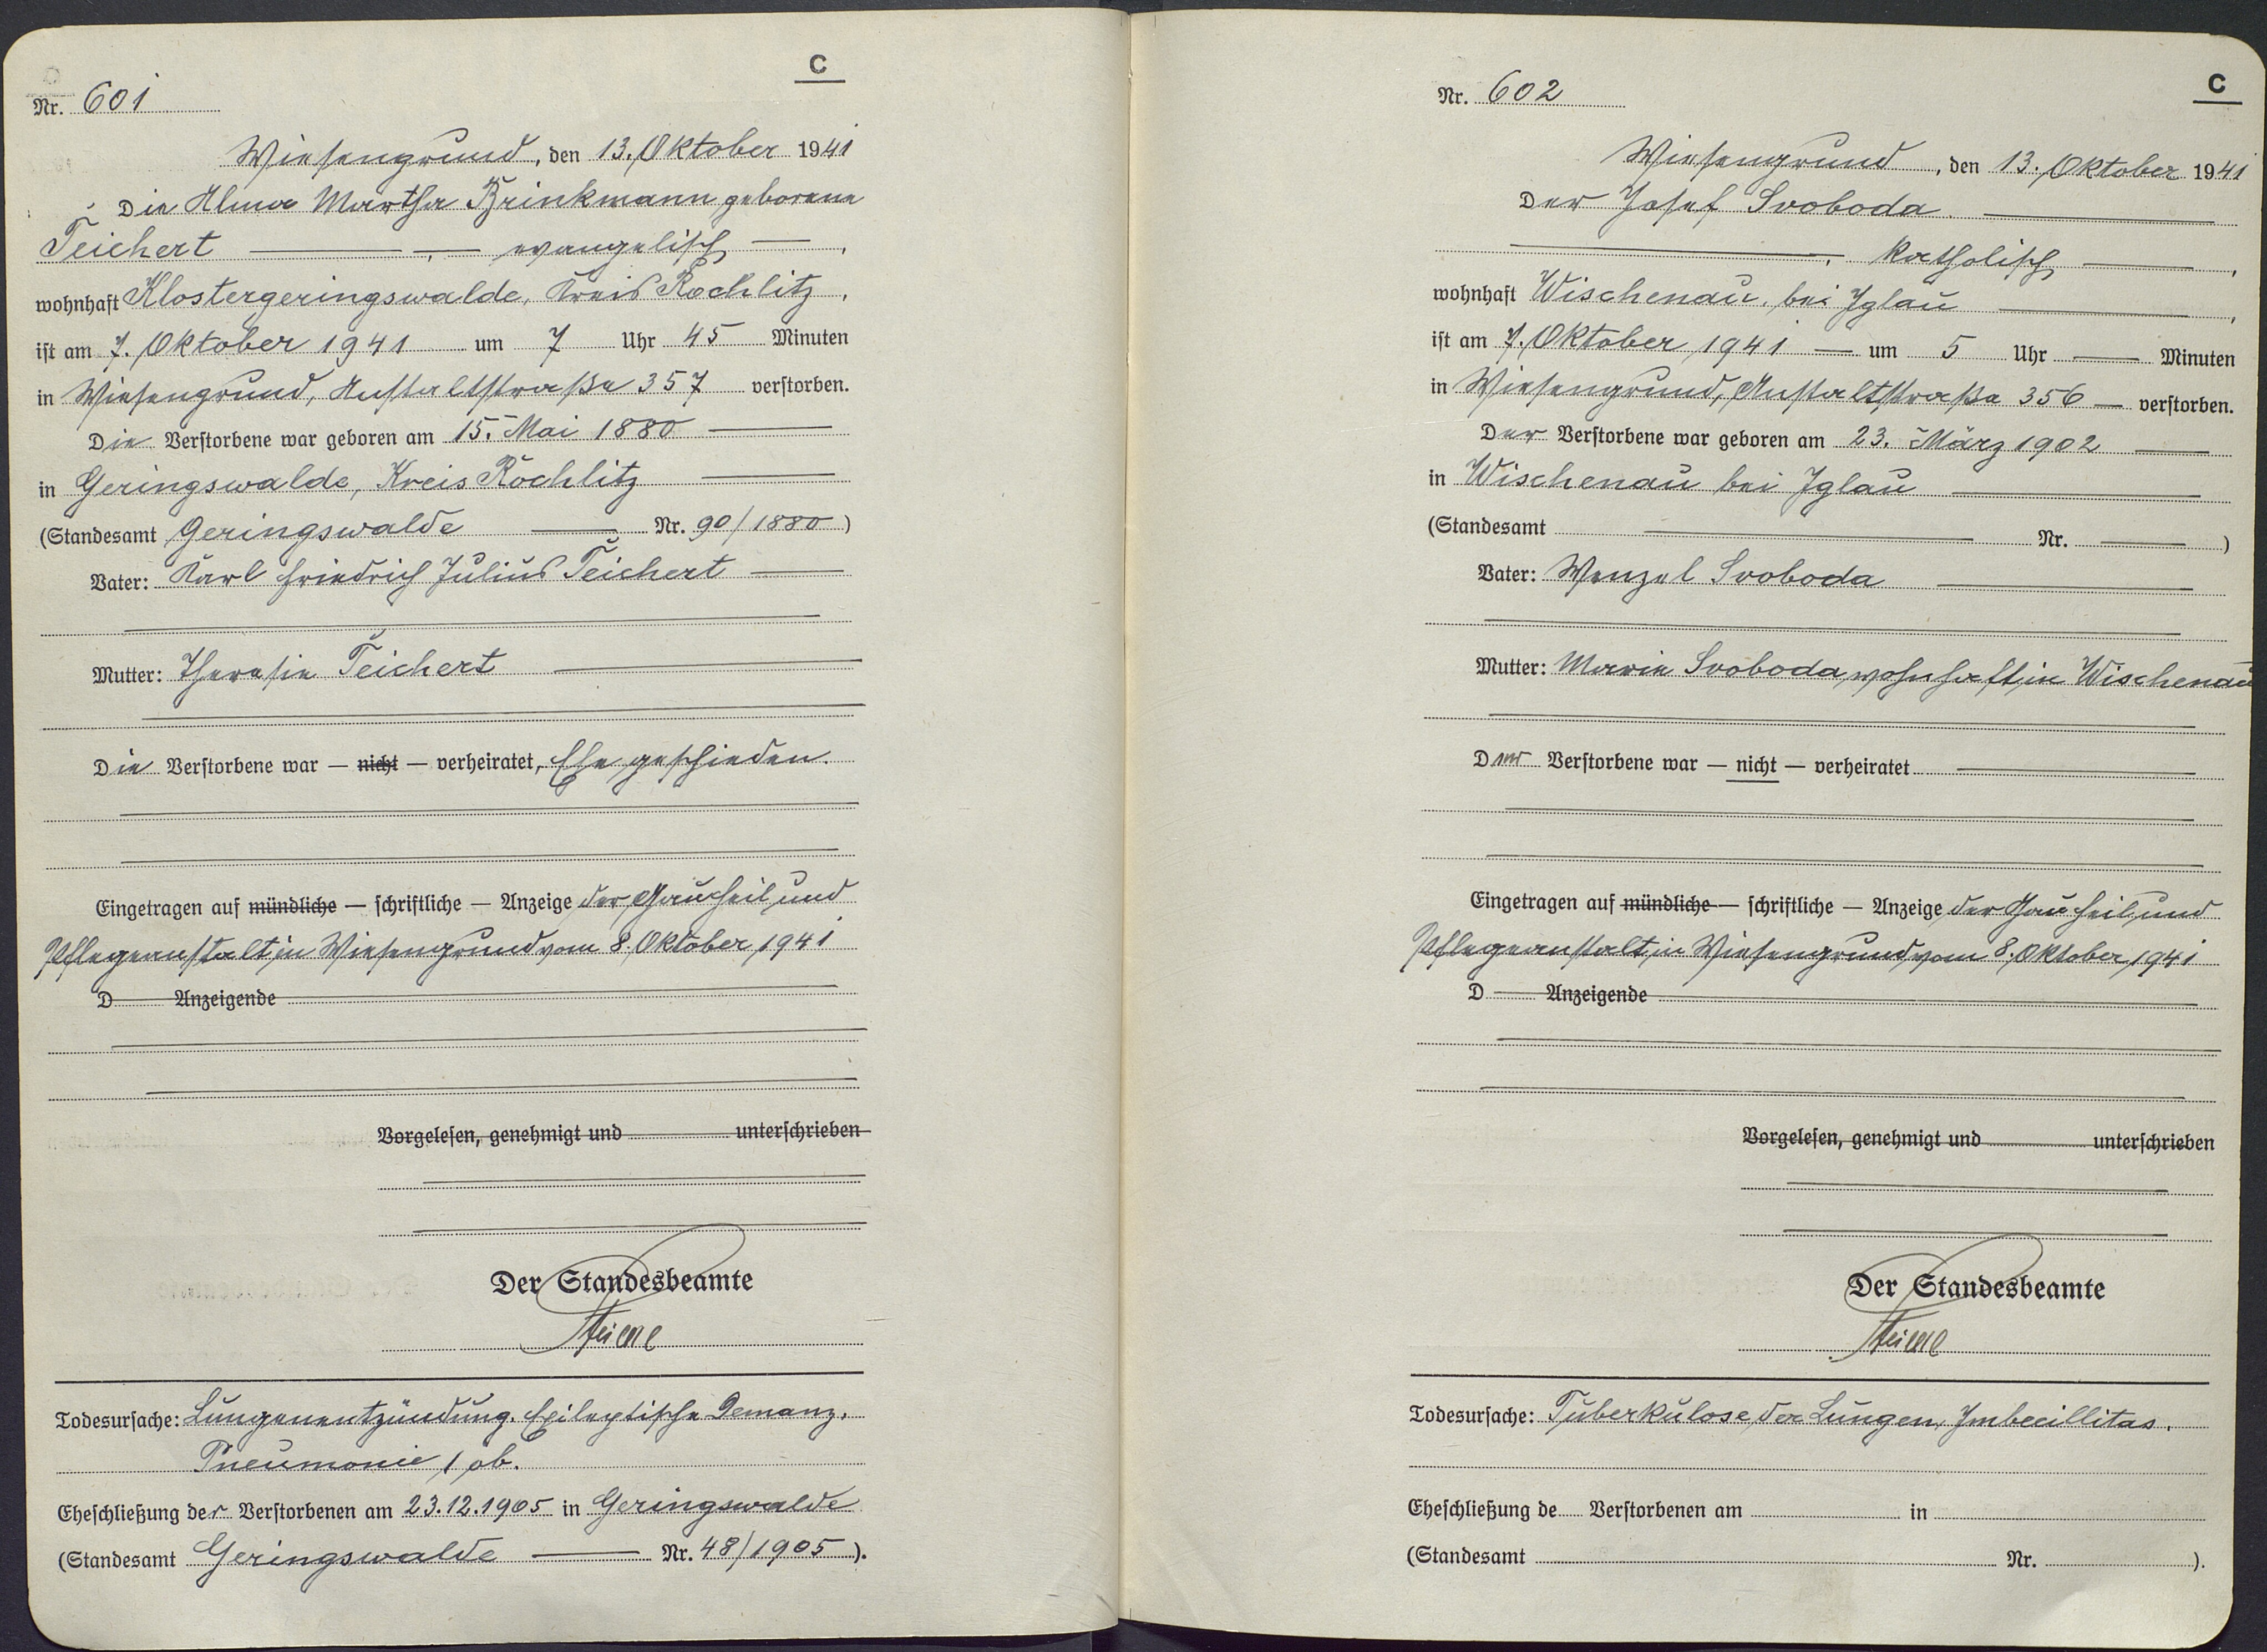 C
Nr. 601
Wiesengrund, den 13. Oktober 1941
Die Alma Martha Brinkmann geborene
Teichert evangelisch,
wohnhaft Klostergeringswalde, Kreis Rochlitz,
ist am 7. Oktober 1941 um 7 Uhr 45 Minuten
in Wiesengrund, Anstaltstraße 357 verstorben.
Die Verstorbene war geboren am 15. Mai 1880
in Geringswalde, Kreis Rochlitz
(Standesamt Geringswalde Nr. 90/1880)
Vater: Karl Friedrich Julius Teichert
Mutter: Theresie Teichert
Die Verstorbene war — nicht — verheiratet, Ehe geschieden.
Eingetragen auf mündliche — schriftliche — Anzeige der Gauheil und
Pflegeanstalt in Wiesengrund vom 8. Oktober 1941
D Anzeigende
Vorgelesen, genehmigt und unterschrieben
Der Standesbeamte
Todesursache: Lungenentzündung. Epileptische Demenz.
Pneumonie
Eheschließung der Verstorbenen am 23.12.1905 in Geringswalde
(Standesamt Geringswalde Nr. 48/1905).
C
Nr. 602
Wiesengrund, den 13. Oktober 1941
Der Josef Svoboda
, katholisch,
wohnhaft Wischenau, bei Iglau,
ist am 7. Oktober 1941 um 5 Uhr — Minuten
in Wiesengrund, Anstaltstraße 356 — verstorben.
Der Verstorbene war geboren am 23. März 1902
in Wischenau bei Iglau
(Standesamt Nr. )
Vater: Wenzel Svoboda
Mutter: Marie Svoboda, wohnhaft in Wischenau
Der Verstorbene war — nicht — verheiratet
Eingetragen auf mündliche — schriftliche — Anzeige der Gauheil und
Pflegeanstalt in Wiesengrund vom 8. Oktober 1941
D Anzeigende
Vorgelesen, genehmigt und unterschrieben
Der Standesbeamte
Todesursache: Tuberkulose der Lungen, Imbecillitas.
Eheschließung de Verstorbenen am in
(Standesamt Nr. ).